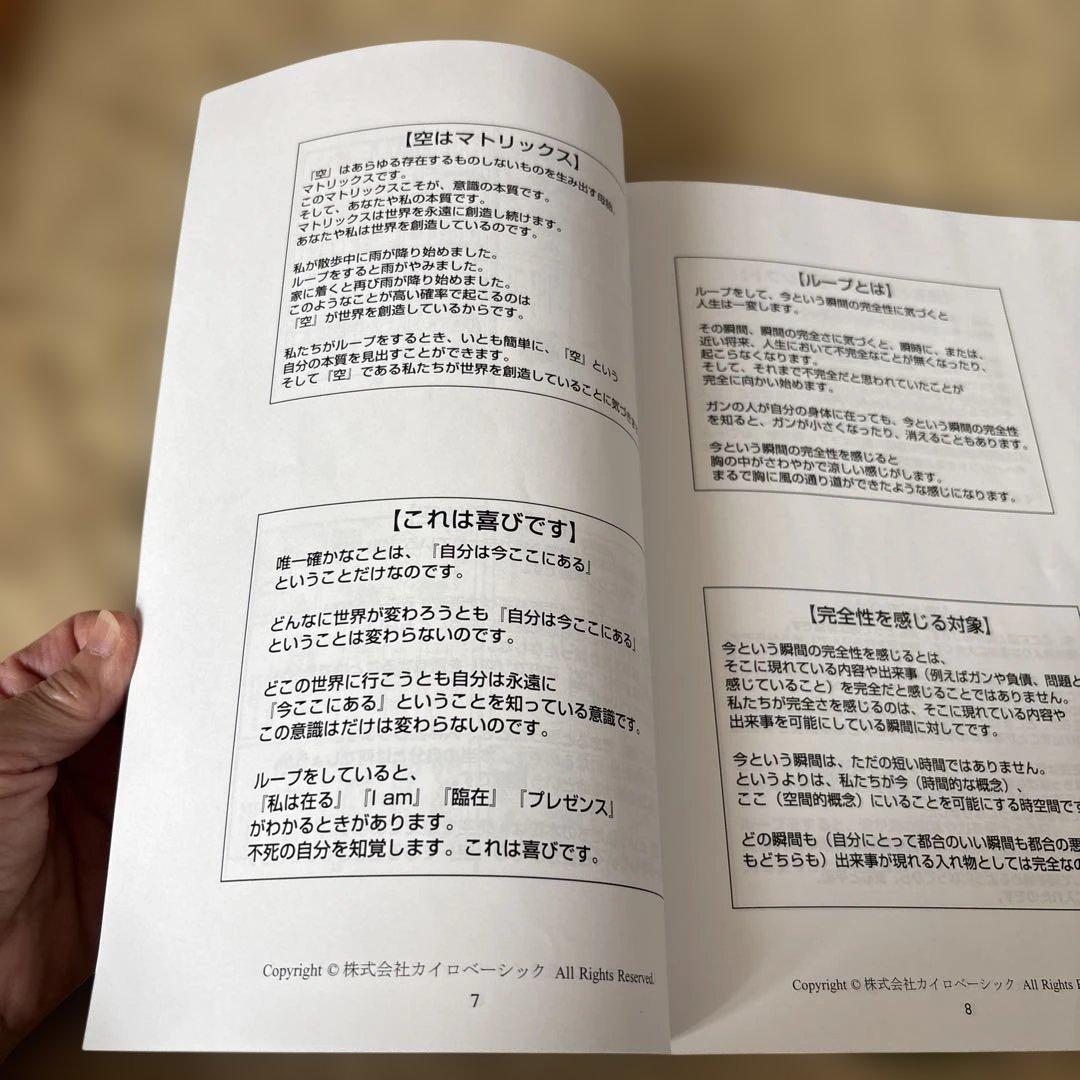 【空はマトリックス】
『空』はあらゆる存在するものしないものを生み出す母胎、
マトリックスです。
このマトリックスこそが、意識の本質です。
そして、あなたや私の本質です。
マトリックスは世界を永遠に創造し続けます。
あなたや私は世界を創造しているのです。
私が散歩中に雨が降り始めました。
ループをすると雨がやみました。
家に着くと再び雨が降り始めました。
このようなことが高い確率で起こるのは
『空』が世界を創造しているからです。
私たちがループをするとき、いとも簡単に、『空』という
自分の本質を見出すことができます。
そして『空』である私たちが世界を創造していることに気づきま
【これは喜びです】
唯一確かなことは、『自分は今ここにある』
ということだけなのです。
どんなに世界が変わろうとも『自分は今ここにある』
ということは変わらないのです。
どこの世界に行こうとも自分は永遠に
『今ここにある』ということを知っている意識です。
この意識はだけは変わらないのです。
ループをしていると、
『私は在る』『I am』『臨在』『プレゼンス』
がわかるときがあります。
不死の自分を知覚します。これは喜びです。
Copyright © 株式会社カイロベーシック All Rights Reserved.
7
【ループとは】
ループをして、今という瞬間の完全性に気づくと
人生は一変します。
その瞬間、瞬間の完全さに気づくと、瞬時に、または、
近い将来、人生において不完全なことが無くなったり、
起こらなくなります。
そして、それまで不完全だと思われていたことが
完全に向かい始めます。
ガンの人が自分の身体に在っても、今という瞬間の完全性
を知ると、ガンが小さくなったり、消えることもあります。
今という瞬間の完全性を感じると
胸の中がさわやかで涼しい感じがします。
まるで胸に風の通り道ができたような感じになります。
【完全性を感じる対象】
今という瞬間の完全性を感じるとは、
そこに現れている内容や出来事（例えばガンや負債、問題と
感じていること）を完全だと感じることではありません。
私たちが完全さを感じるのは、そこに現れている内容や
出来事を可能にしている瞬間に対してです。
今という瞬間は、ただの短い時間ではありません。
というよりは、私たちが今（時間的な概念）、
ここ（空間的概念）にいることを可能にする時空間です
どの瞬間も（自分にとって都合のいい瞬間も都合の悪
もどちらも）出来事が現れる入れ物としては完全なの
Copyright © 株式会社カイロベーシック All Rights
8